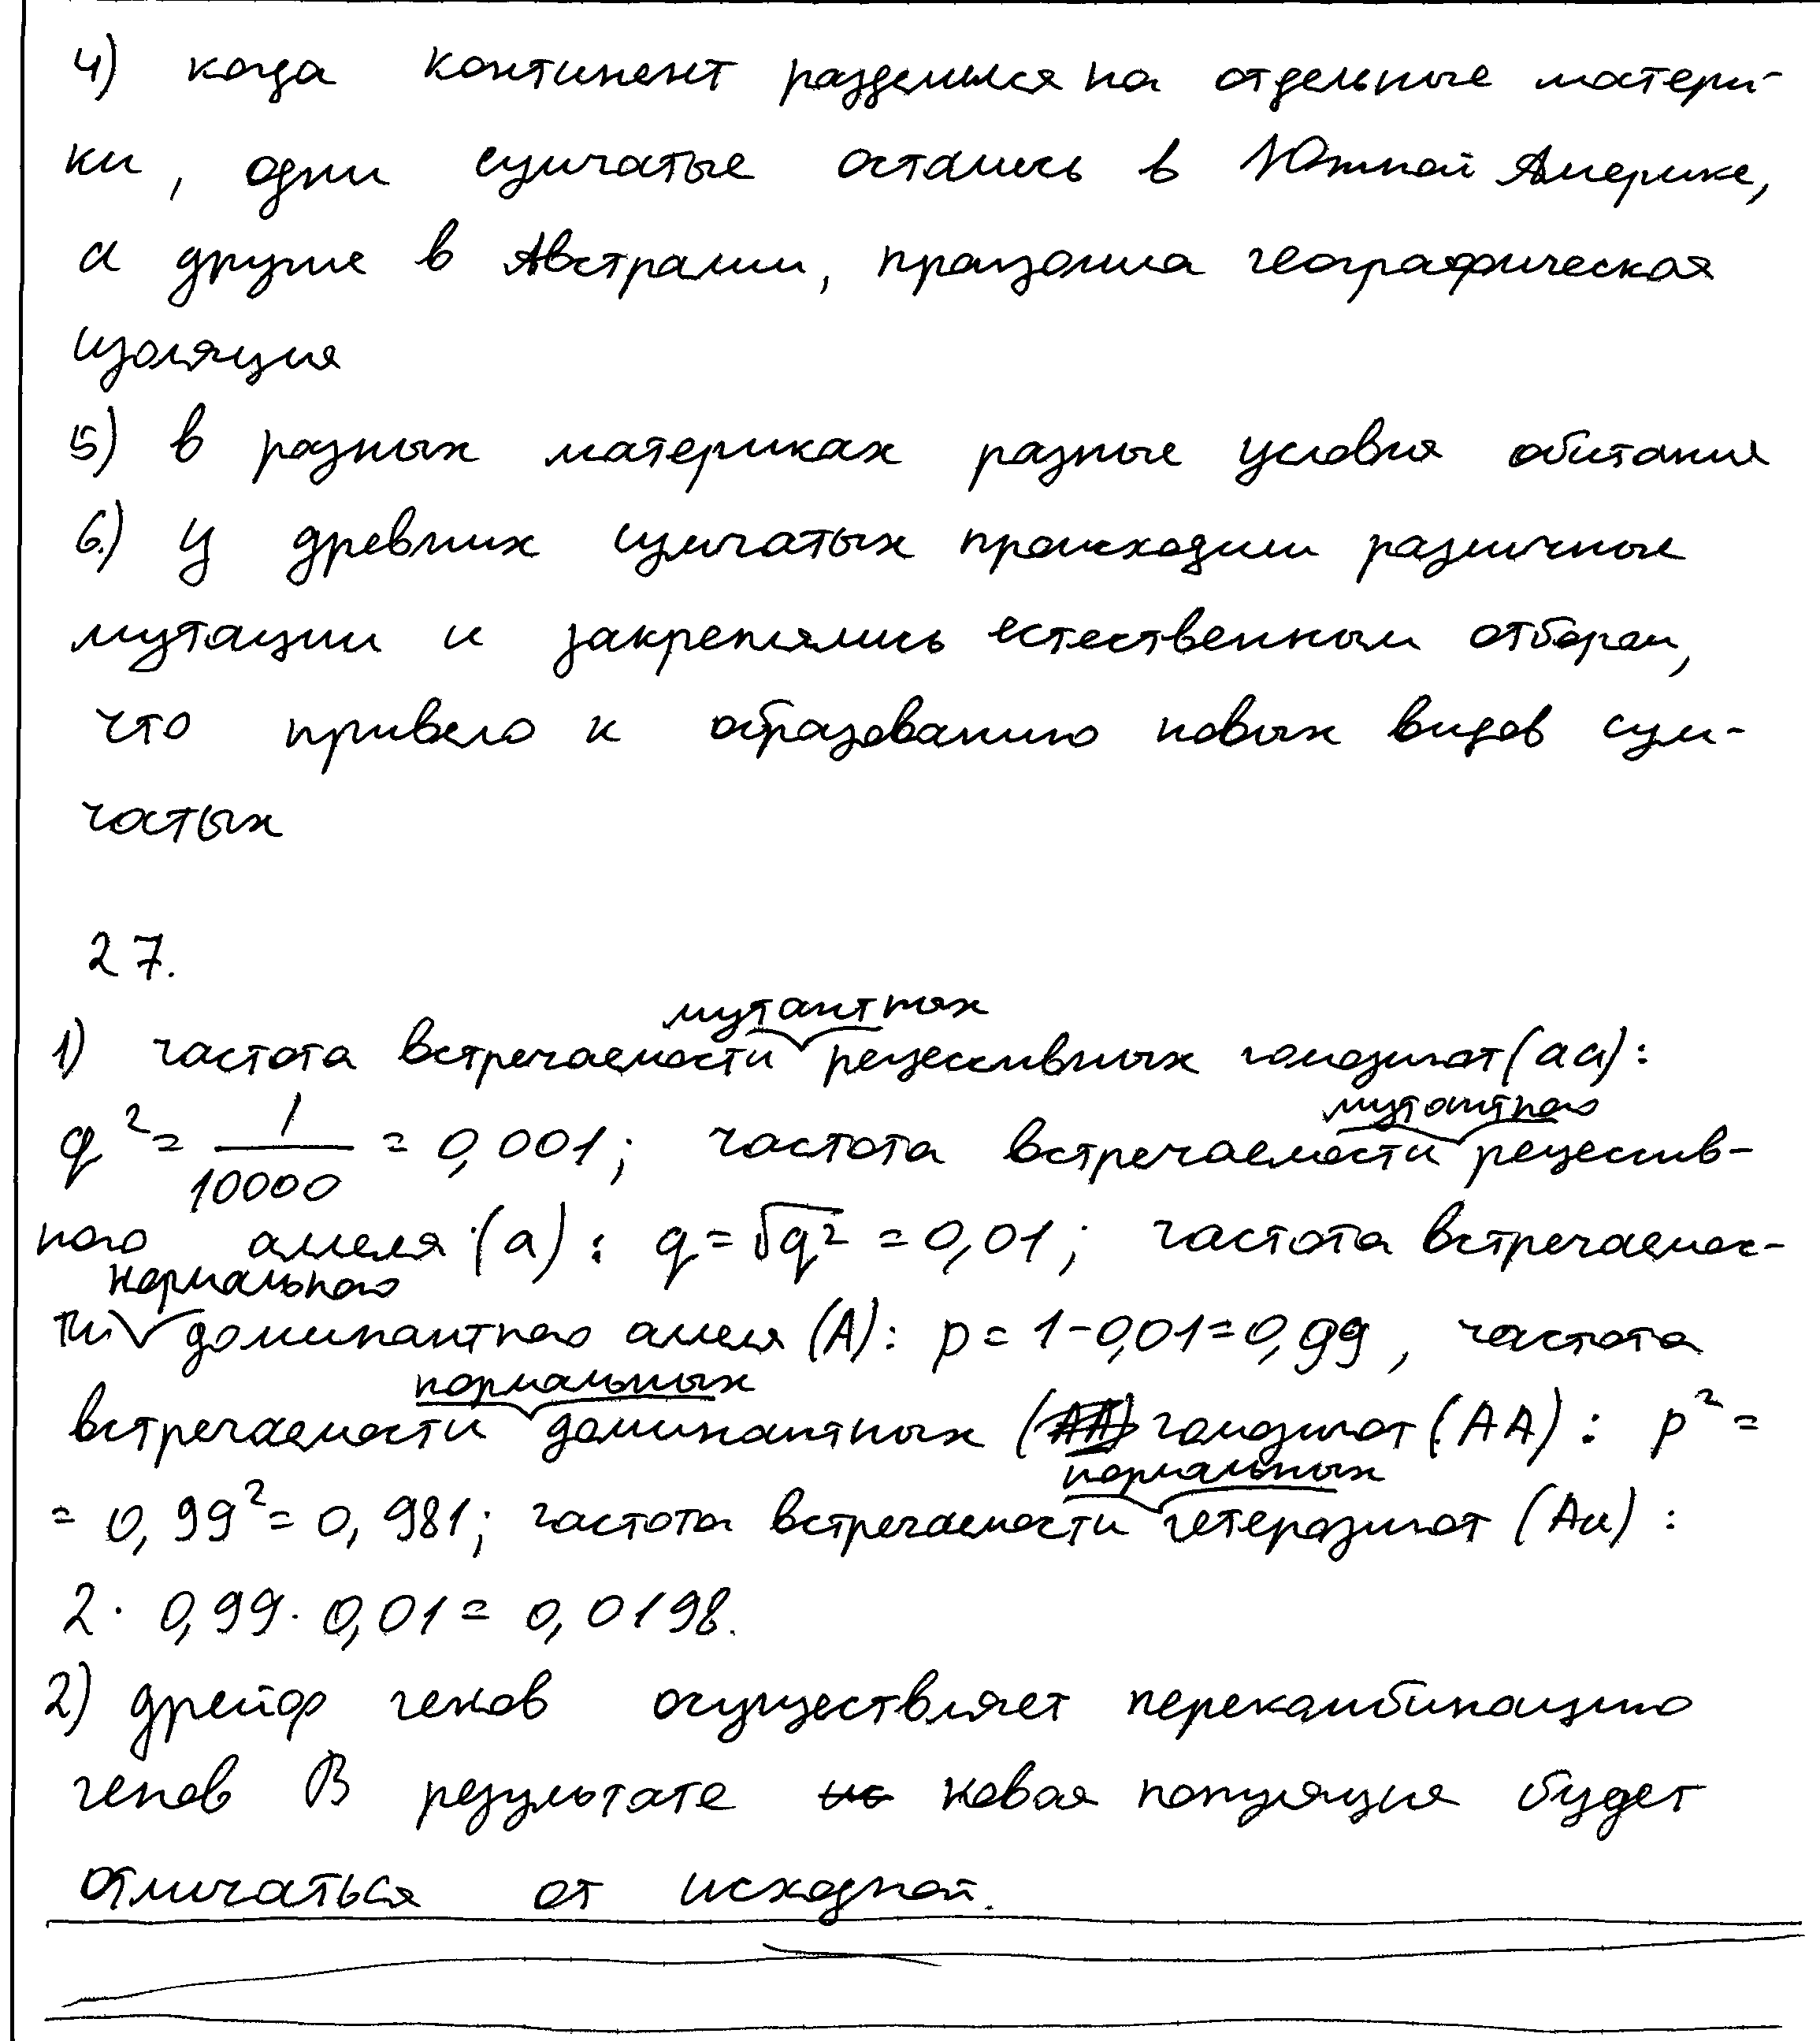 4) когда континент разделился на отдельные матери-
ки, одни сумчатые остались в Южной Америке,
а другие в Австралии, произошла географическая
изоляция
5) в разных материках разные условия обитания
6) у древних сумчатых происходили различные
мутации и закреплялись естественным отбором,
что привело к образованию новых видов сум-
чатых
27.
мутантных
1) частота встречаемости рецессивных гомозигот (аа):
мутантного
q² = 1/10000 = 0,001; частота встречаемости рецессив-
ного аллеля (а): q = √q² = 0,01; частота встречаемос-
нормального
ти доминантного аллеля (А): p = 1-0,01=0,99, частота
нормальных
встречаемости доминантных (АА) гомозигот (АА): p² =
нормальных
= 0,99² = 0,981; частота встречаемости гетерозигот (Аа):
2 · 0,99 · 0,01 = 0,0198.
2) дрейф генов осуществляет перекомбинацию
генов В результате не новая популяция будет
отличаться от исходной.